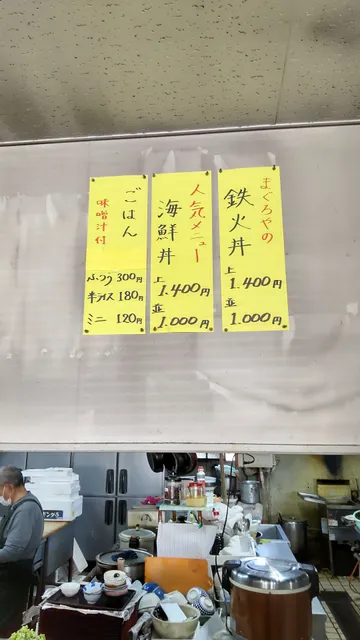 まぐろやの
鉄火丼
上
1.400円
並
1.000円
人気メニュー
海鮮丼
上
1.400円
並
1.000円
ごはん
味噌汁付
ふつう 300円
半ライス 180円
ミニ 120円